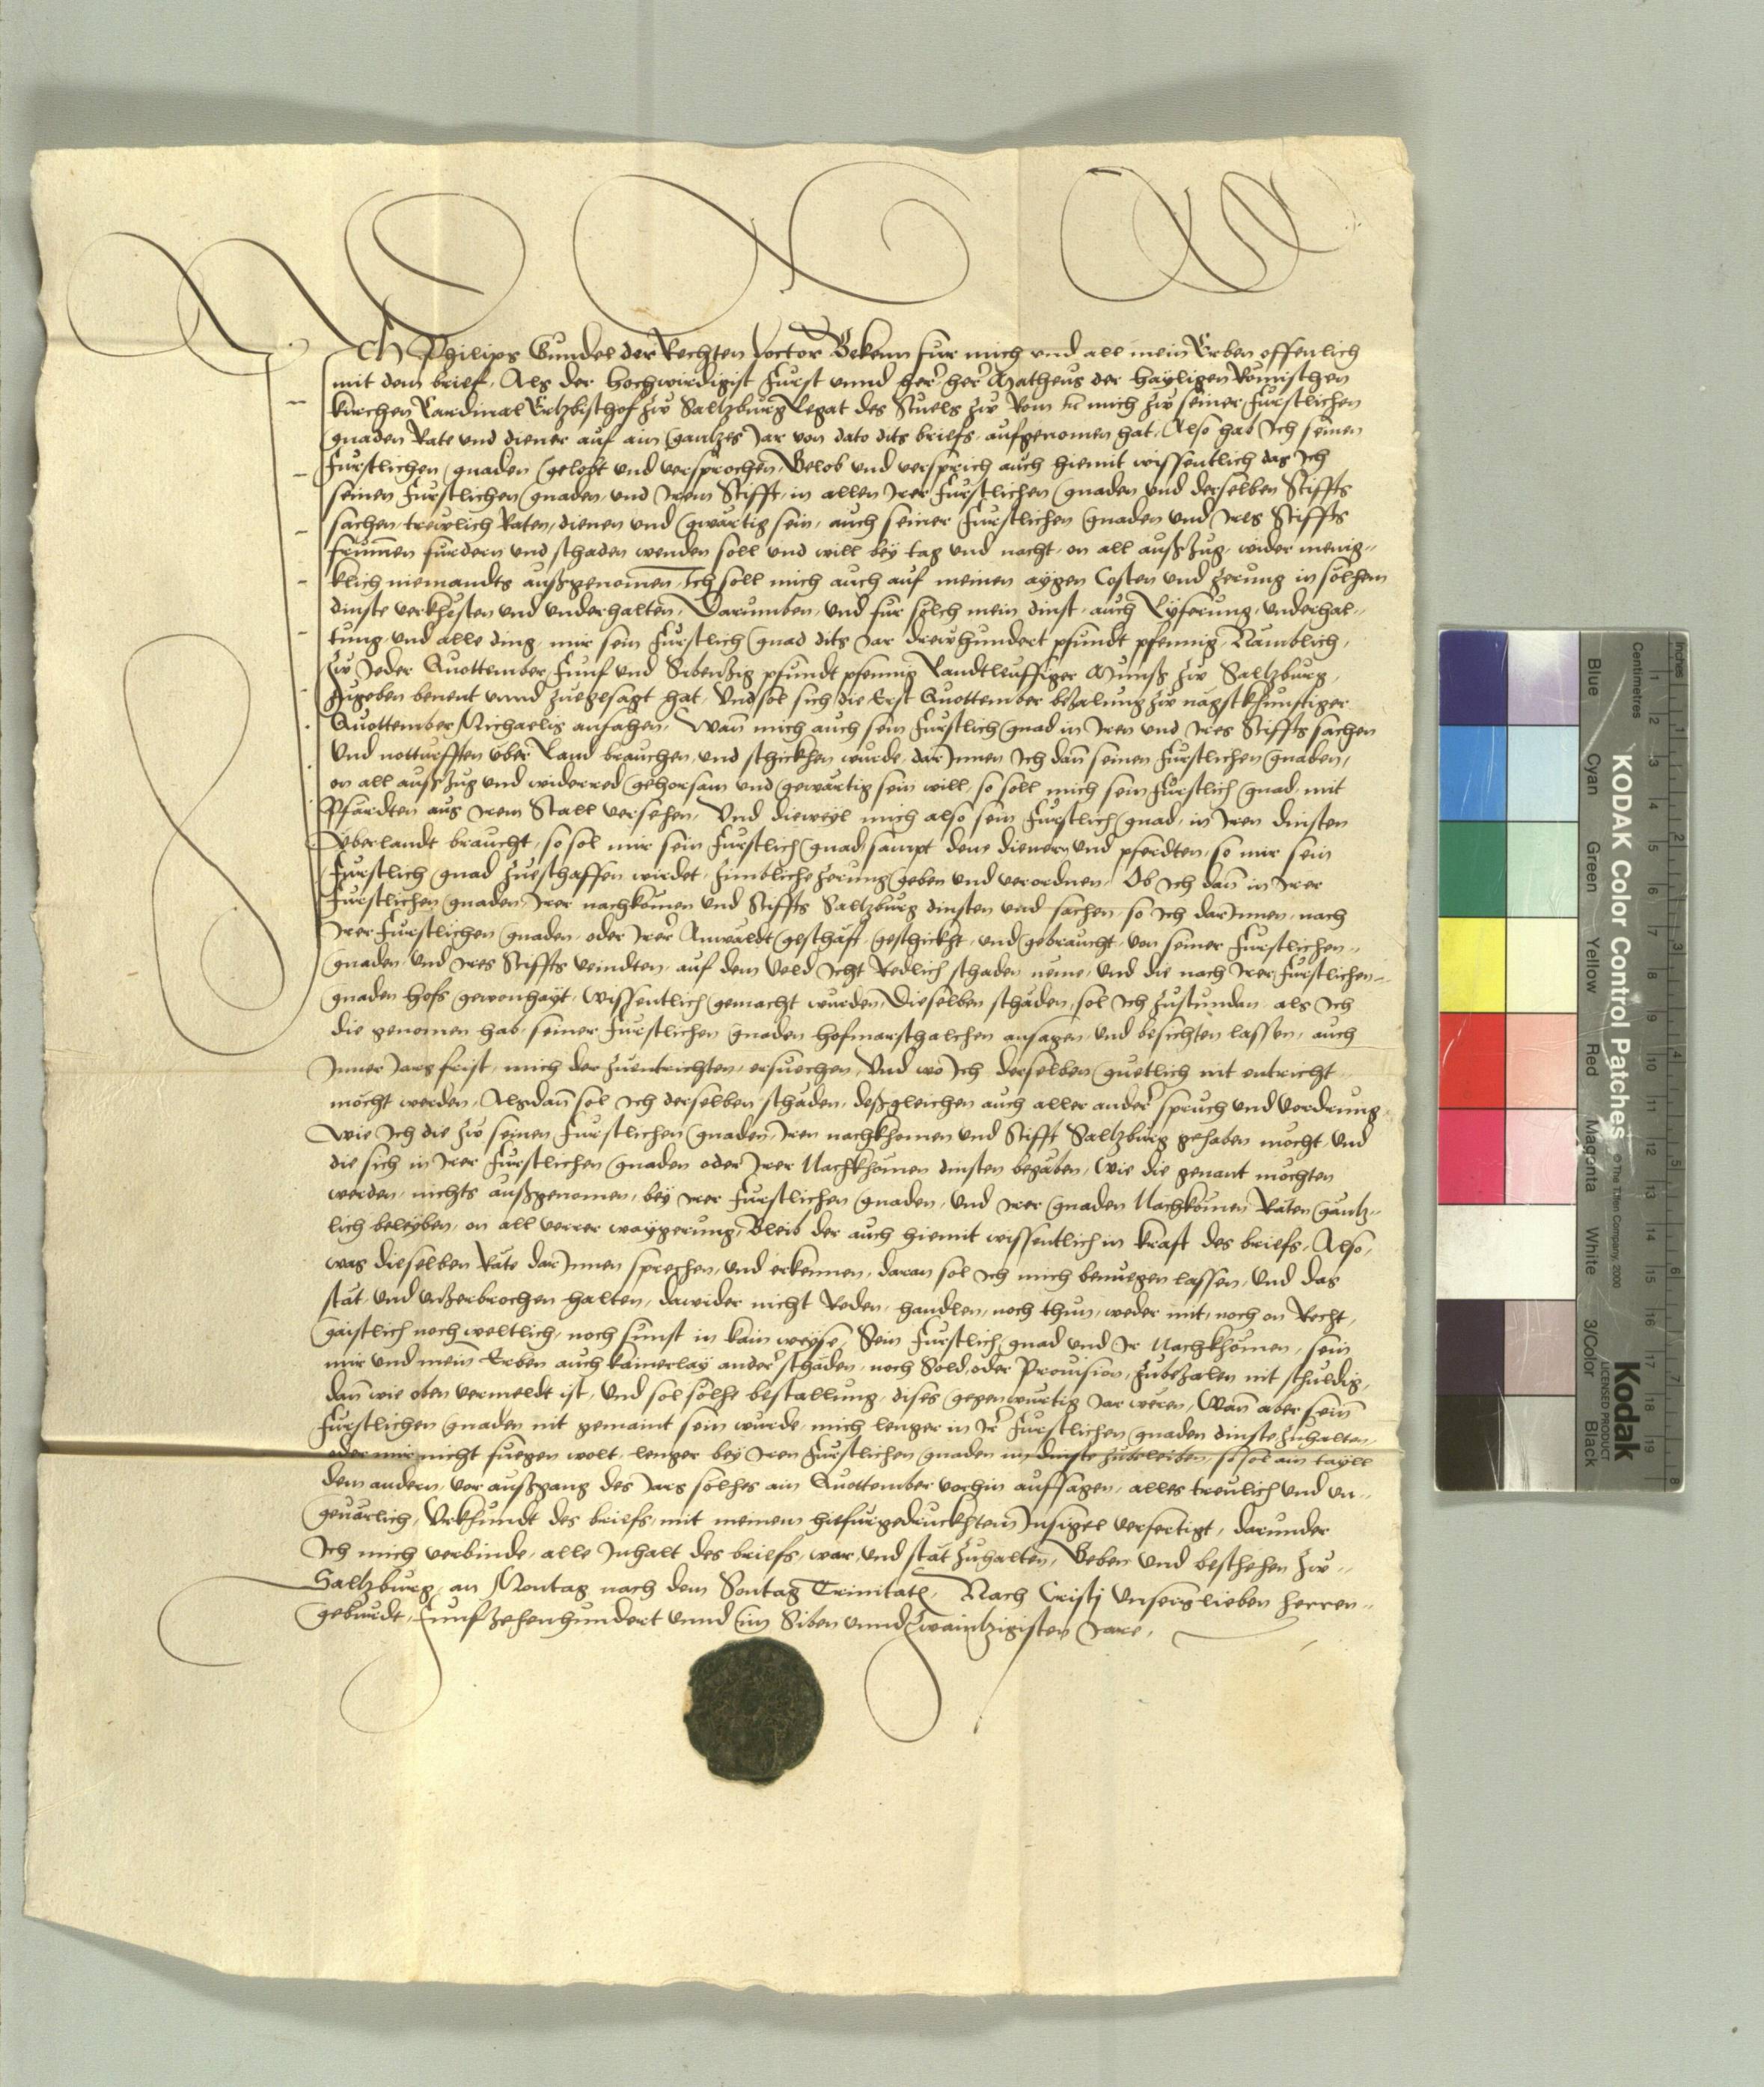 Ich Philips Gundel der Rechten Doctor Bekenn fur mich vnd all mein Erben offenlich
mit dem brief, Als der hochwirdigist Furst vnnd her͛ her͛ Matheus der hayligen Romischen
kirchen Cardinal Ertzbischof zw Saltzburg Legat des Stuels zw Rom mich zw seiner Furstlichen
gnaden Rate vnd diener auf ain gantzes Jar von dato dits briefs aufgenomen hat, Also hab Ich seinen
Furstlichen gnaden gelobt vnd versprochen, Gelob vnd versprich auch hiemit wissentlich das Ich
seinen Furstlichen gnaden, vnd Irem Stifft, in allen Irer Furstlichen gnaden vnd derselben Stiffts
sachen, trewlich Raten, dienen vnd gwärtig sein, auch seiner Furstlichen gnaden vnd Ires Stiffts
frumen furdern vnd schaden wenden soll vnd will bey tag vnd nacht, on all außzug, wider menig-
klich niemandts außgenomen, Ich soll mich auch auf meinen aygen Costen vnd zerung in solhem
dinste verkhosten vnd vnderhalten, Darumben, vnd fur solch mein dinst, auch Lyferung, vnderhal-
tung, vnd alle ding, mir sein Furstlich gnad dits Jar drewhundert pfundt pfennig, Nämblich,
zw Jeder Quottember Funf vnd Sibenzig pfundt pfennig Landtleuffiger Munß zw Saltzburg,
zugeben benent vnnd zuegesagt hat, Vnd sol sich die Erst Quottember bezalung zw nägstkhunftiger
Quottember Michaelis anfahen, Wan̄ mich auch sein Furstlich gnad in Iren vnd Ires Stiffts sachen
vnd notturfften vber Land brauchen, vnd schickhen wurde, darInnen Ich dan̄ seinen Furstlichen gnaden,
on all außzug vnd widerred gehorsam vnd gewärtig sein will, so soll mich sein Furstlich gnad, mit
Pfärdten aus Irem Stall versehen, Vnd dieweyl mich also sein Furstlich gnad, in Iren dinsten
vberlandt braucht, so sol mir sein Furstlich gnad sampt dene dienern vnd pferdten, so mir sein
Furstlich gnad zueschaffen wirdet, zimbliche zerung geben vnd verordnen, Ob Ich dan̄ in Irer
Furstlichen gnaden, Irer nachkomen vnd Stiffts Saltzburg dinsten vnd sachen, so Ich darInnen, nach
Irer Furstlichen gnaden, oder Irer͛ Anwäldt geschäft, geschickht, vnd gebraucht, von seiner Furstlichen
gnaden, vnd Ires Stiffts veindten, auf dem veld Icht Redlich schaden neme, vnd die nach Irer Furstlichen
gnaden hofs gewonhayt, wissentlich gemacht wurden, Dieselben schäden, sol Ich zustundan, als Ich
die genomen hab, seiner Furstlichen gnaden hofmarschalchen ansagen, vnd besichten lassen, auch
Inner Jars frist, mich der zuentrichten, ersuechen, Vnd wo Ich derselben guetlich nit entricht
möcht werden, Alsdan̄ sol Ich derselben schäden, deßgleichen auch aller ander͛ spruch vnd vordrung
wie Ich die zw seinen Furstlichen gnaden, Iren nachkhomen vnd Stifft Saltzburg gehaben möcht, vnd
die sich in Irer Furstlichen gnaden oder Irer Nachkhomen dinsten begäben, wie die genant möchten
werden, nichts außgenomen, bey Irer Furstlichen gnaden, vnd Irer gnaden Nachkomen Räten gäntz-
lich beleyben, on all verrer waygerung, Bleib der auch hiemit wissentlich in kraft des briefs, Also,
was dieselben Räte darInnen sprechen, vnd erkennen, daran sol Ich mich benuegen lassen, vnd das
stät, vnd vnzerbrochen halten, dawider nicht Reden, handlen, noch thun, weder mit, noch on Recht,
gaistlich noch weltlich, noch sunst in kain weyse, Sein Furstlich gnad vnd Ir Nachkhomen, sein
mir vnd mein Erben auch kainerlay ander͛ schäden, noch Sold, oder Prouision, zubezalen nit schuldig,
dan̄ wie oben vermeldt ist, vnd sol solhe bestallung, dises gegenwurtig Jar weren, Wan̄ aber sein
Furstlichen gnaden nit gemaint sein wurde, mich lenger in Ir͛ Furstlichen gnaden dinste zuhalten,
oder mir nicht fuegen wolt, lenger bey Iren Furstlichen gnaden im dinste zubeleiben, so sol ain tayll
dem andern, vor außgang des Jars solhes ain Quottember vorhin aufsagen, alles treulich vnd vn-
geuärlich, Vrkhundt des briefs, mit meinem hiefurgedruckhtem Insigel verfertigt, darunder
Ich mich verbinde, alle Inhalt des briefs, war, vnd stät zuhalten, Geben vnd beschehen zw
Saltzburg, an Montag nach dem Sontag Trinitatis, Nach Cristj vnsers lieben herren
geburde, Funfzehenhundert vnnd im Siben vnnd zwaintzigisten Jare,
KODAK Color Control Patches
© The Tiffen Company, 2000
Kodak
LICENSED PRODUCT
Inches
Centimetres
Blue
Cyan
Green
Yellow
Red
Magenta
White
3/Color
Black